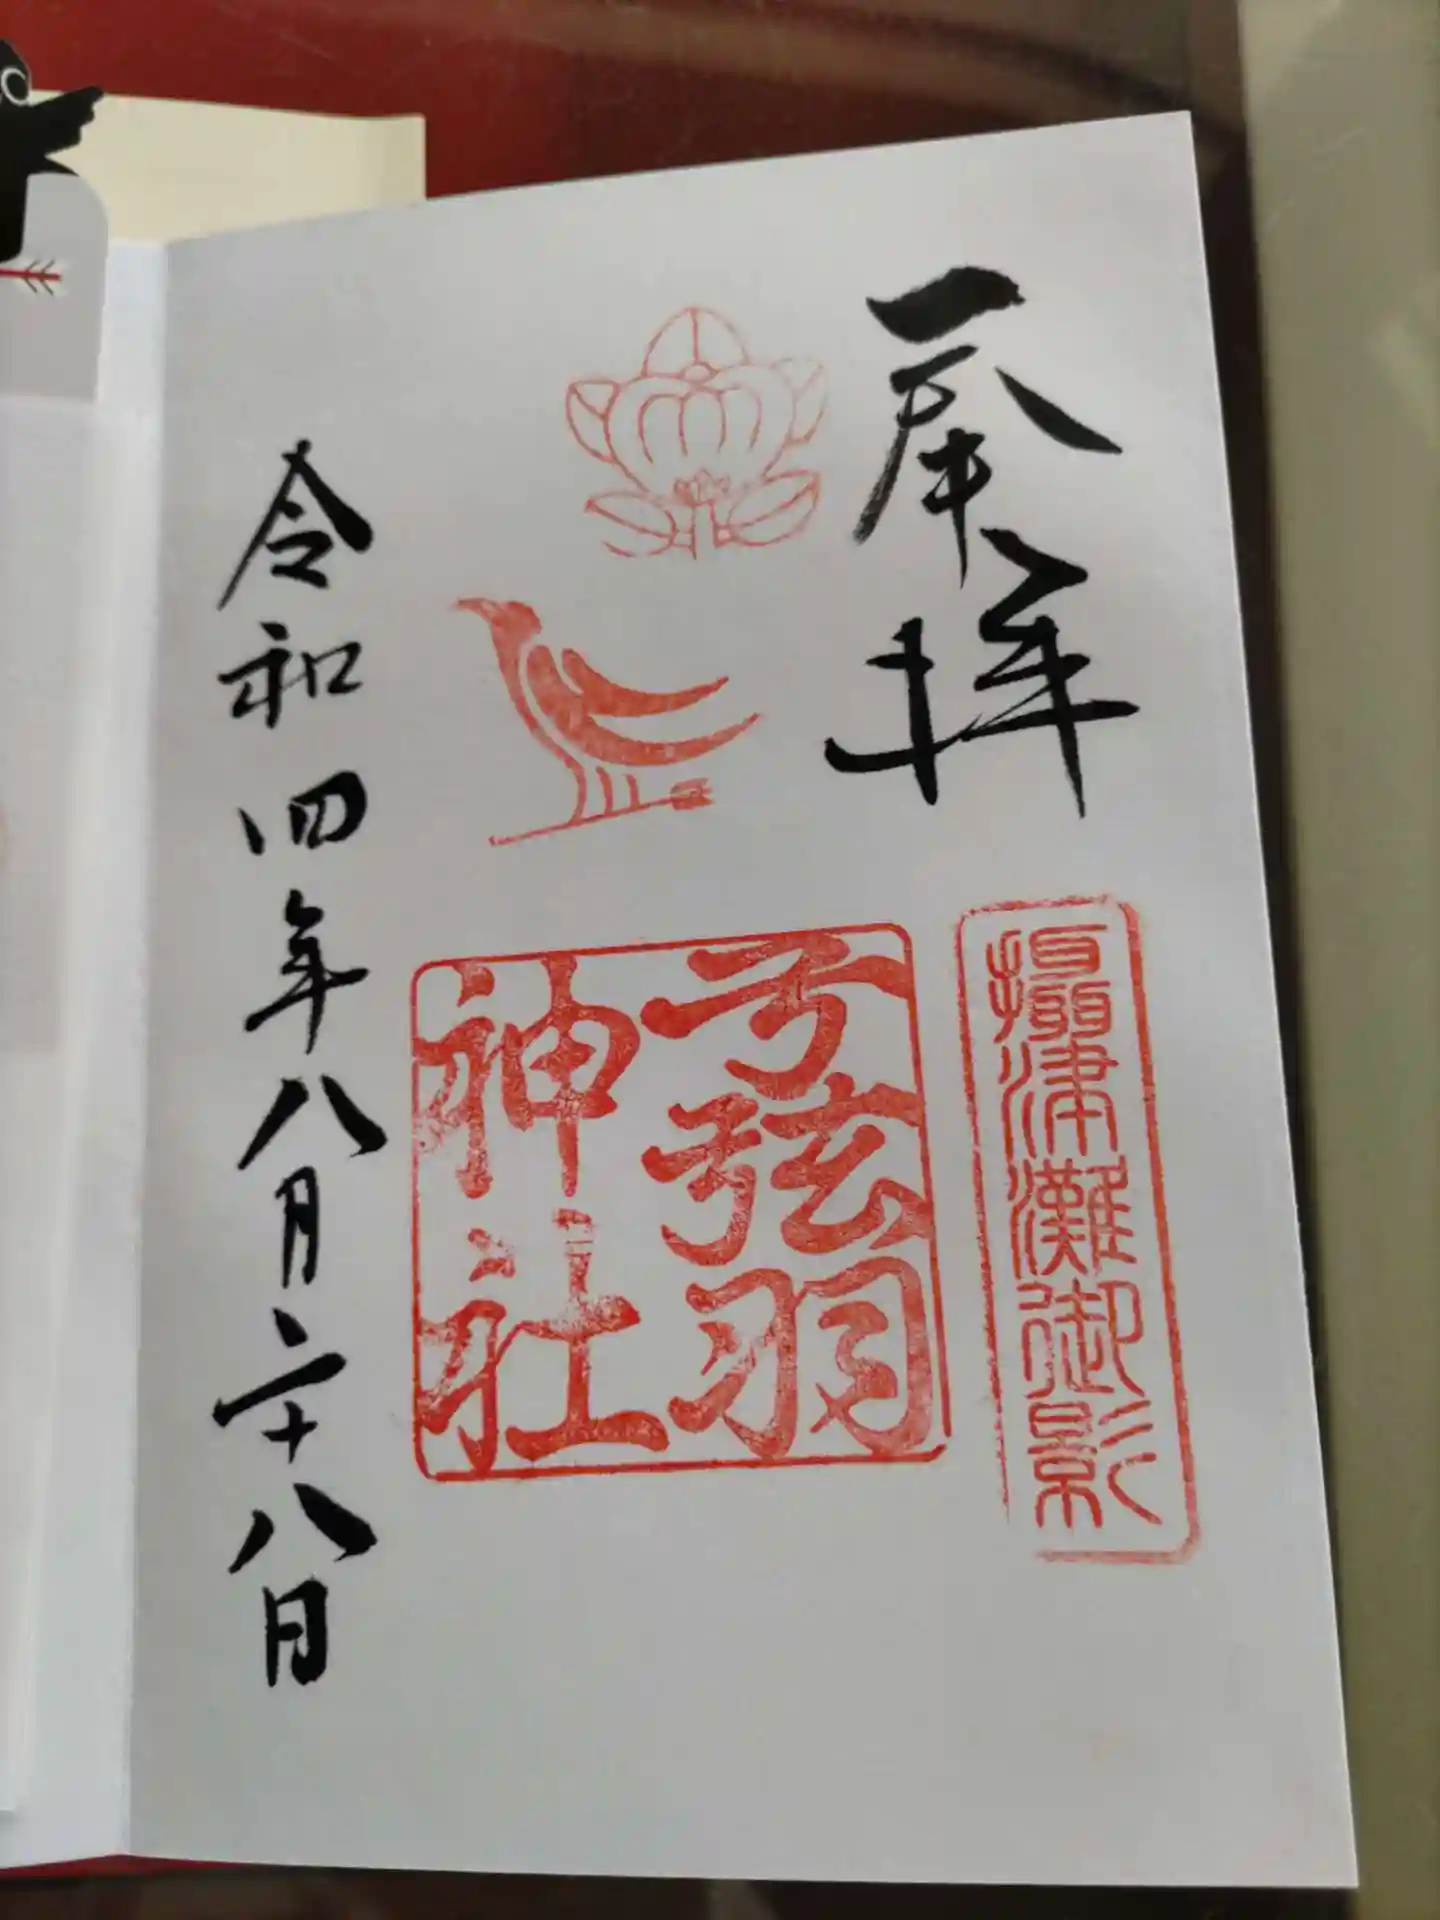 奉拝
摂津灘御影
弓弦羽
神社
令和四年八月二十八日